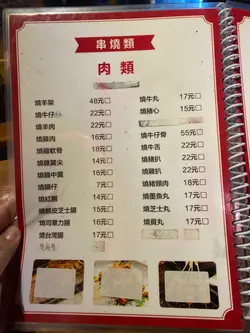 串燒類
肉類
燒羊架 48元□
燒牛仔 22元□
燒羊肉 22元□
燒雞肉 16元□
燒雞軟骨 18元□
燒雞翼尖 14元□
燒雞中翼 16元□
燒腸仔 7元□
燒紅腸 14元□
燒脆皮芝士腸 15元□
燒司華力腸 16元□
燒台灣腸 17元□
燒牛丸 17元□
燒豬心 15元□
燒牛仔骨 55元□
燒牛舌 22元□
燒豬扒 22元□
燒雞扒 22元□
燒豬頸肉 18元□
燒墨魚丸 17元□
燒芝士丸 17元□
燒貢丸 17元□